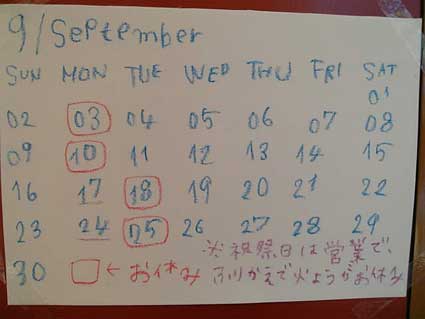 9/September
SUN MON TUE WED THU FRI SAT
01
02 03 04 05 06 07 08
09 10 11 12 13 14 15
16 17 18 19 20 21 22
23 24 25 26 27 28 29
※祝祭日は営業で、
30 □←お休み ふりかえで火ようがお休み